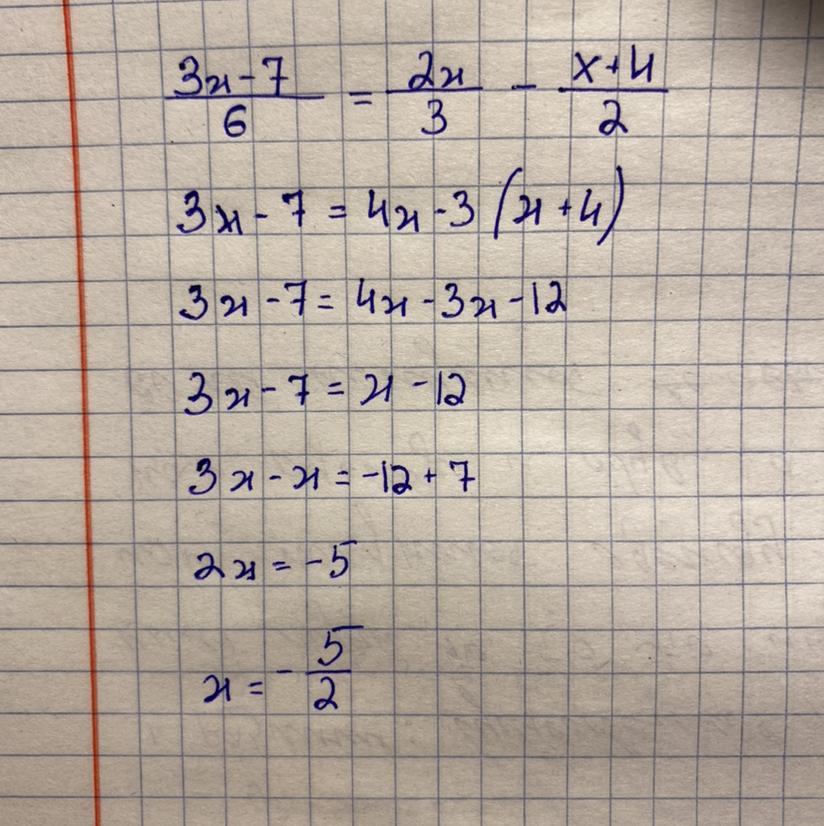 (3x-7)/6 = 2x/3 - (x+4)/2
3x - 7 = 4x - 3(x+4)
3x - 7 = 4x - 3x - 12
3x - 7 = x - 12
3x - x = -12 + 7
2x = -5
x = -5/2